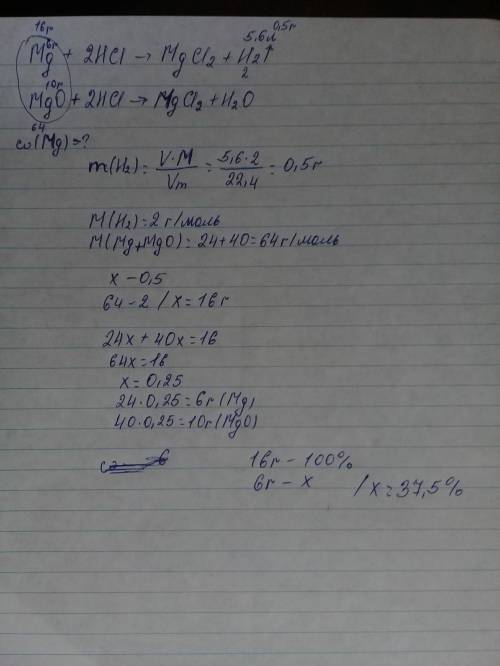 16г
6г 5,6л 0,5г
Mg + 2HCl → MgCl2 + H2↑
2
10г
MgO + 2HCl → MgCl2 + H2O
64
ω(Mg)=?
m(H2) = V·M / Vm = 5,6·2 / 22,4 = 0,5г
M(H2) = 2 г/моль
M(Mg,MgO) = 24+40=64г/моль
x – 0,5
64 – 2 / x = 16г
24x + 40x = 16
64x = 16
x = 0,25
24·0,25 = 6г (Mg)
40·0,25 = 10г (MgO)
16г – 100%
6г – x / x = 37,5%